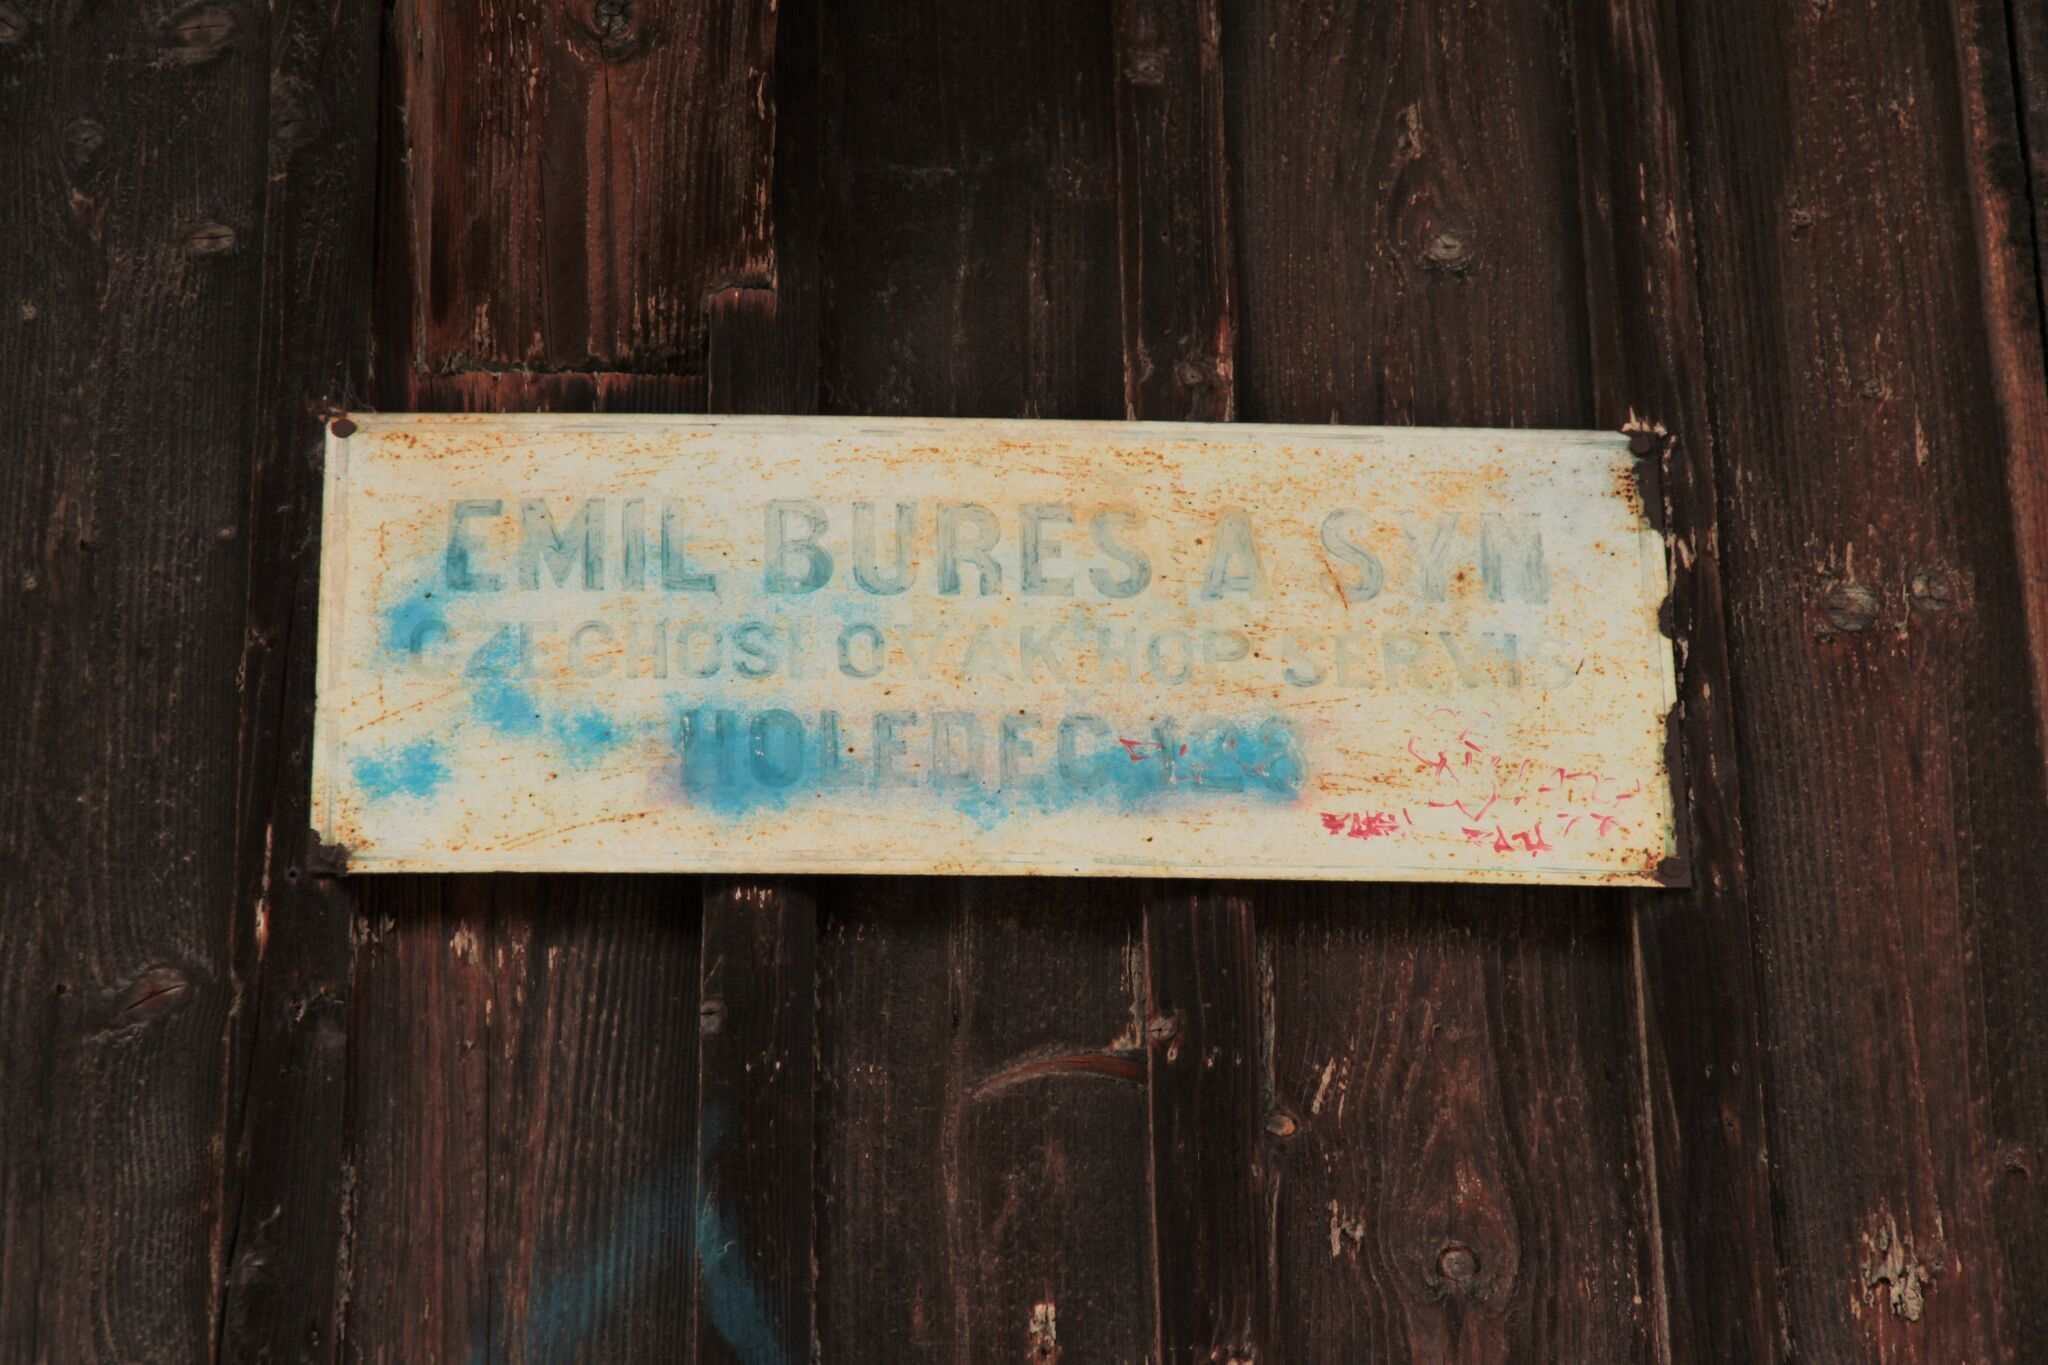 EMIL BURES A SYN
CZECHOSLOVAK HOP SERVIS
HOLEDEČ 128